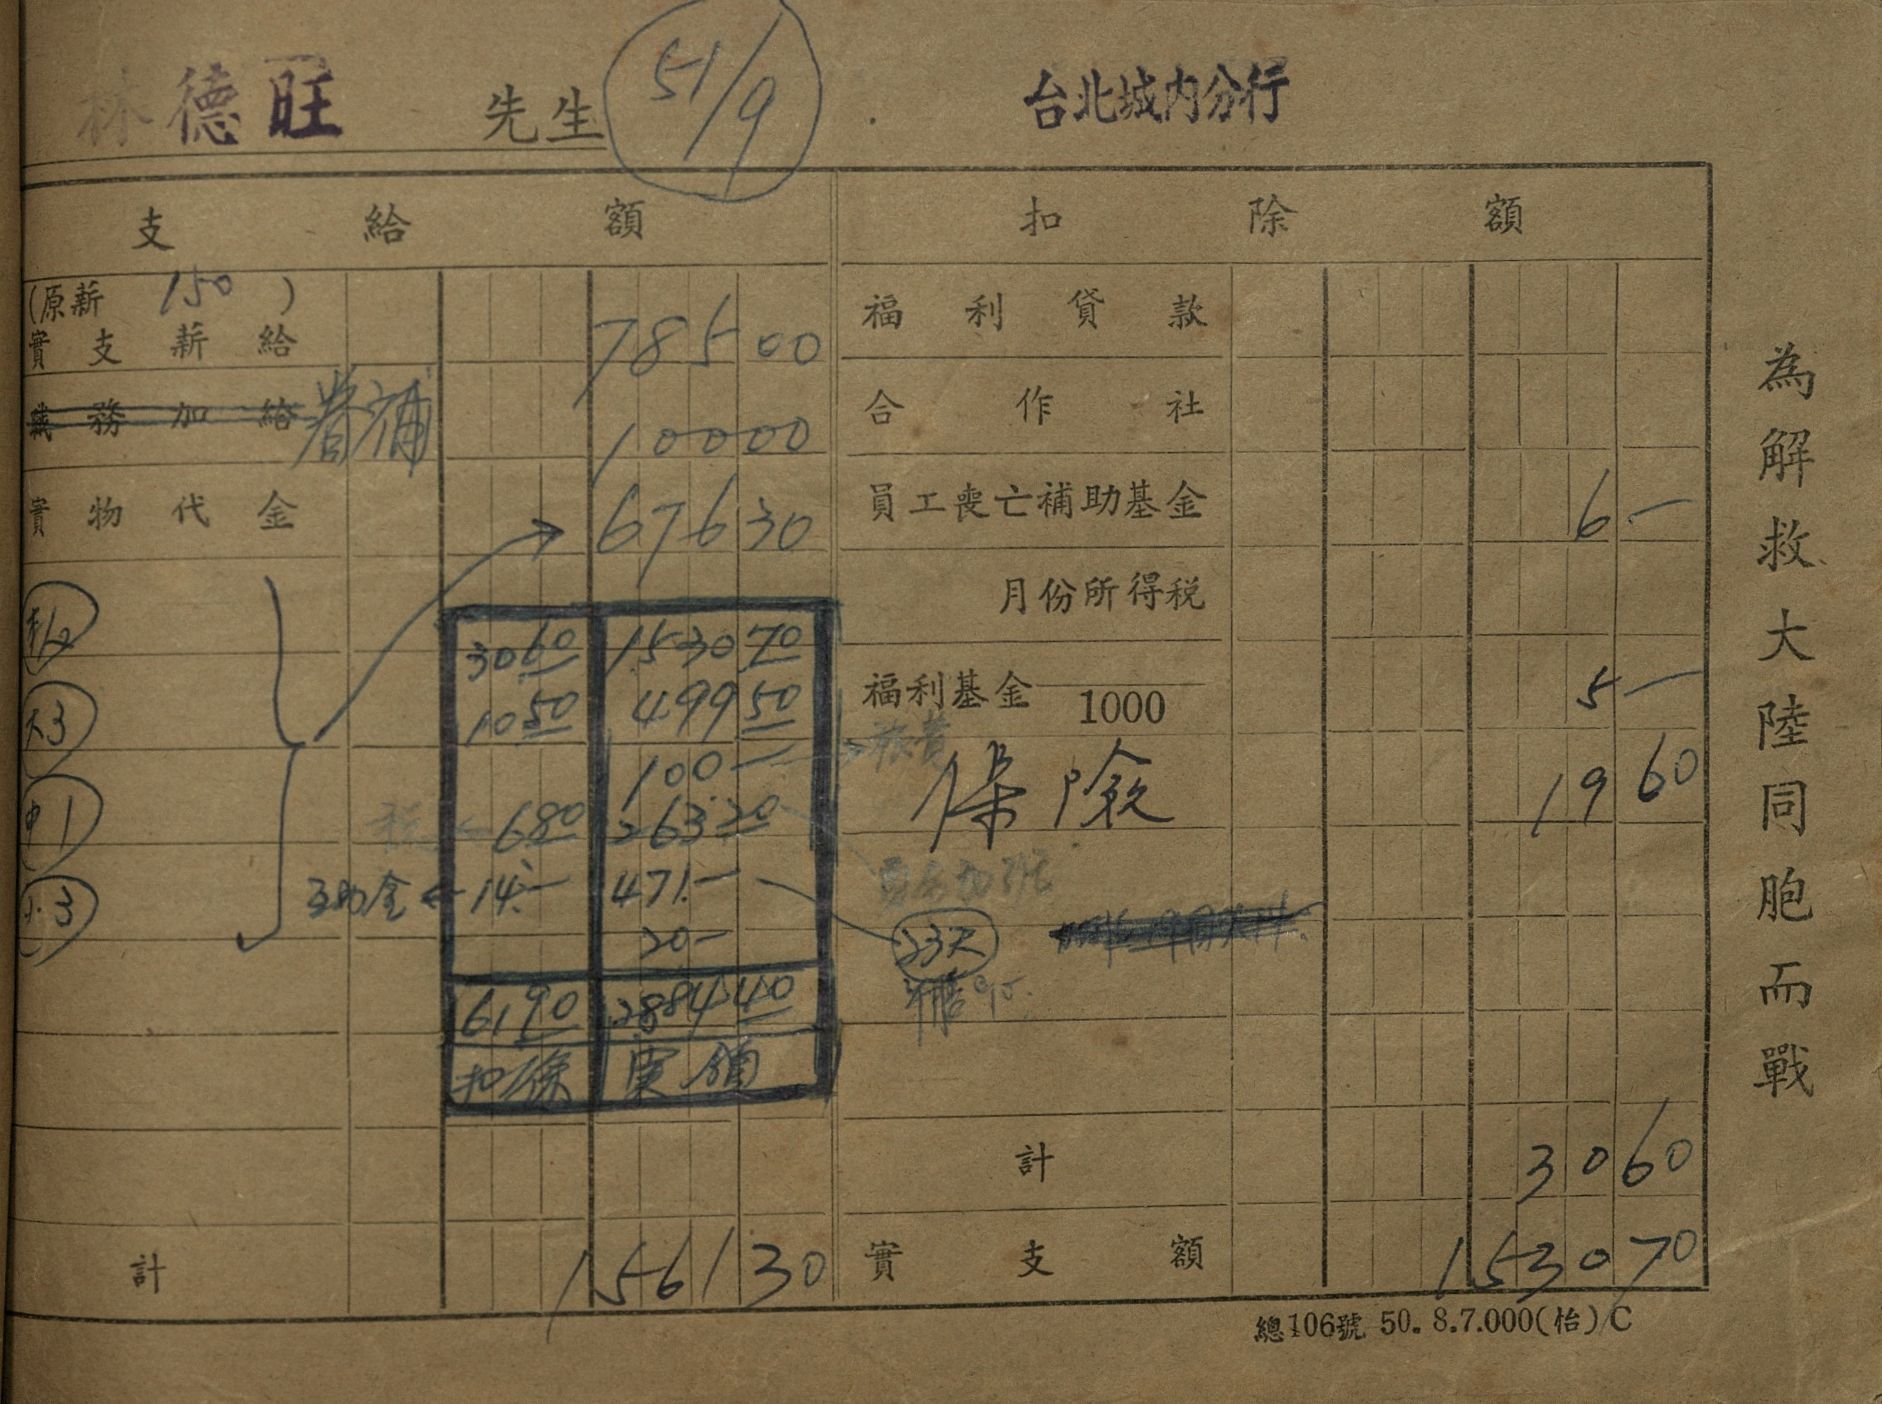 林德旺 先生 51/9 台北城内分行
支給額 扣除額
(原薪 150 )
實支薪給 785 00
福利貸款
職務加給 眷補 100 00
合作社
實物代金 676 30
員工喪亡補助基金 6-
月份所得税
30 60 1530 70
大3 10 50 499 50
福利基金 1000 5-
100-
保險 19 60
中1 税 ← 6 80 263 20
小3 互助金 ← 14.- 471.-
20- 23天
61 90 2884 40
扣除 實領
計 30 60
計 1561 30
實支額 1530 70
總106號 50.8.7.000(怡)C
為解救大陸同胞而戰